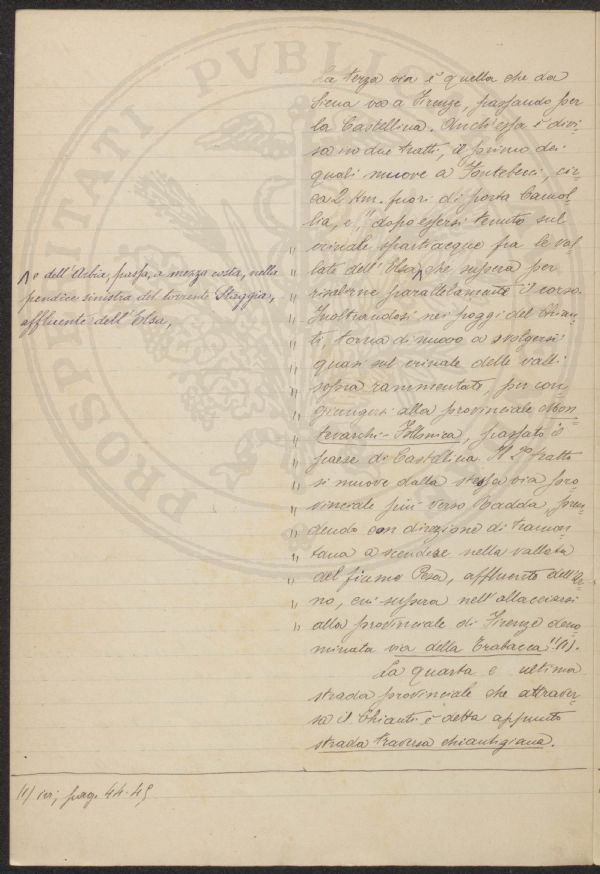 La terza via è quella che da
Siena va a Firenze, passando per
la Castellina. Anch'essa è divi-
sa in due tratti, il primo dei
quali muove a Fontebecci, cir-
ca 2 Km. fuori di porta Camol-
lia, e "dopo essersi tenuto sul
" crinale spartiacque fra le val-
" late dell'Elsa ^ che supera per
" risalirne parallelamente il corso.
" Inoltrandosi nei poggi del Chian-
" ti, torna di nuovo a svolgersi
" quasi sul crinale delle valli
" sopra rammentate, per con-
" giungersi alla provinciale Mon-
" tevarchi-Follonica, passato il
" paese di Castellina. Il 2° tratto
" si muove dalla stessa via pro
" vinciale più verso Radda, pren-
" dendo con direzione di tramon-
" tana a scendere nella vallata
" del fiume Pesa, affluente dell'Ar-
" no, cui supera nell'allacciarsi
" alla provinciale di Firenze deno-
minata via della Trabacca" (1).
La quarta e ultima
strada provinciale che attraver-
sa il Chianti è detta appunto
strada traversa chiantigiana.
^ e dell'Arbia, passa, a mezza costa, nella
pendice sinistra del torrente Staggia,
affluente dell'Elsa,
(1) ivi, pag. 44-45
PROSPERITATI PVBLIC